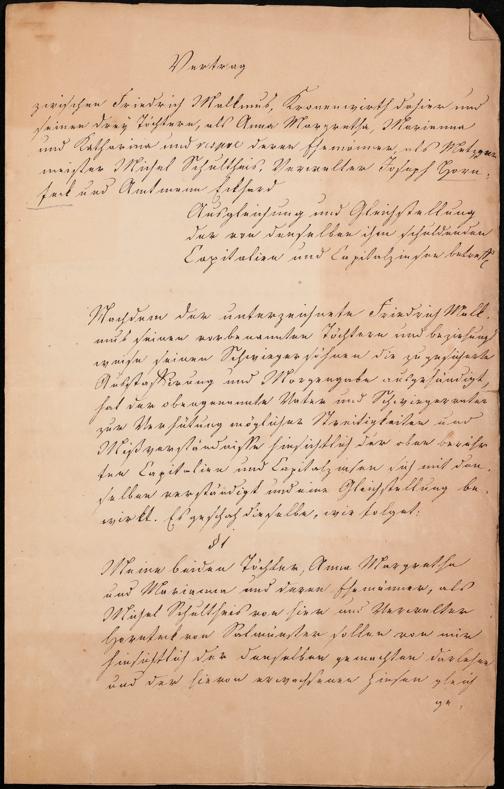 Vertrag
zwischen Friedrich Malkmus, Kronenwirth dahier und
seinen drey Töchtern, als Anna Margretha, Marianna
und Katharina und deren Ehemänner, als Metzger-
meister Michel Schultheis, Verwalter Joseph Horn-
feck und Amtmann Eckhard
Ausgleichung und Gleichstellung
der von denselben ihm schuldenden
Capitalien und Capitalzinsen betreff.
Nachdem der unterzeichnete Friedrich Malk-
mus seinen vorbenannten Töchtern und beziehungs
weise seinen Schwiegersöhnen die zugesicherte
Ausstattung und Morgengabe ausgehändigt,
hat der obengenannte Vater und Schwiegervater
zur Verhütung möglicher Streitigkeiten und
Mißverständnisse hinsichtlich der oben berühr-
ten Capitalien und Capitalzinsen sich mit den-
selben verständigt und eine Gleichstellung be-
wirkt. Es geschah dieselbe, wie folget:
§ 1
Meine beiden Töchter, Anna Margretha
und Marianna und deren Ehemänner, als
Michel Schultheis von hier und Verwalter
Hornfeck von Salmünster sollen von mir
hinsichtlich der denselben gemachten Darlehen
und der hievon erwachsenen Zinsen gleich
ge-